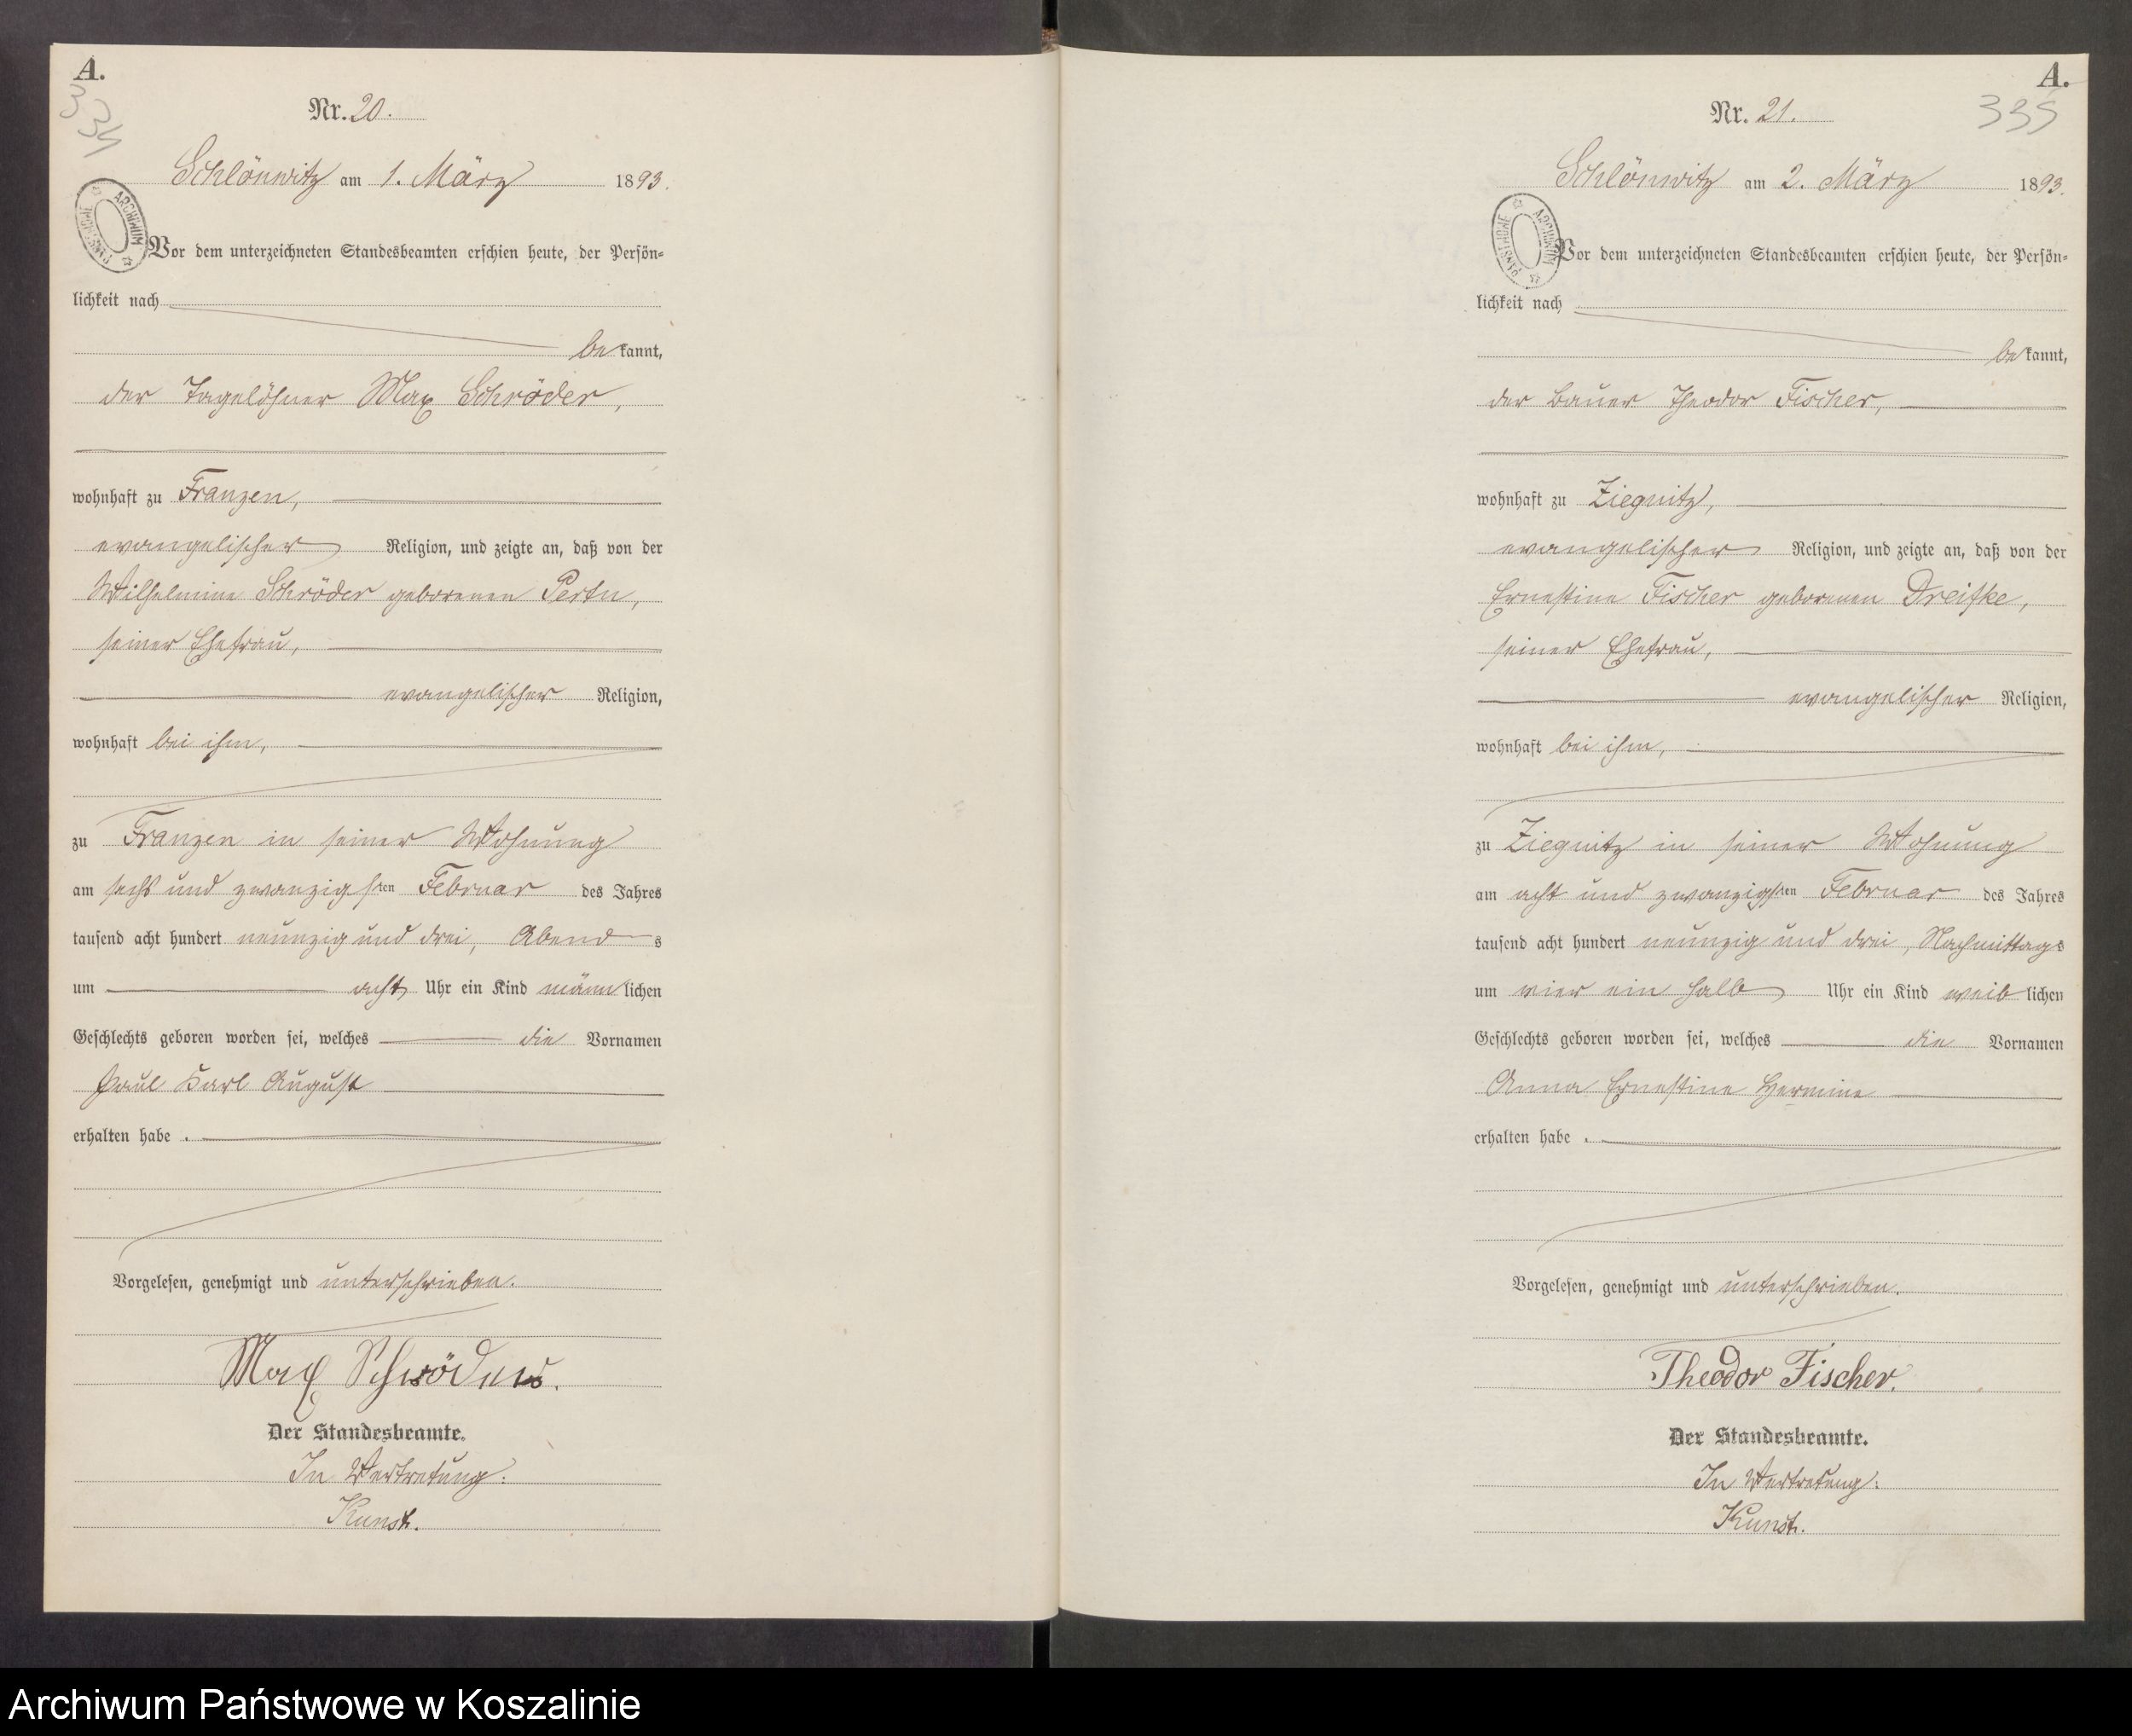 A.
334
Nr. 20.
Schlönwitz am 1. März 1893.
Vor dem unterzeichneten Standesbeamten erschien heute, der Persön=
lichkeit nach
bekannt,
der Tagelöhner Max Schröder,
wohnhaft zu Franzen,
evangelischer Religion, und zeigte an, daß von der
Wilhelmine Schröder geborenen
seiner Ehefrau,
evangelischer Religion,
wohnhaft bei ihm,
zu Franzen in seiner Wohnung
am sechs und zwanzigsten Februar des Jahres
tausend acht hundert neunzig und drei, Abends
um acht Uhr ein Kind männlichen
Geschlechts geboren worden sei, welches die Vornamen
Paul Karl August
erhalten habe.
Vorgelesen, genehmigt und unterschrieben.
Max Schröder.
Der Standesbeamte.
In Vertretung:
Kunst.
PAŃSTWOWE ARCHIWUM
A.
335
Nr. 21.
Schlönwitz am 2. März 1893.
Vor dem unterzeichneten Standesbeamten erschien heute, der Persön=
lichkeit nach
bekannt,
der Bauer Theodor Fischer,
wohnhaft zu Ziegnitz,
evangelischer Religion, und zeigte an, daß von der
Ernestine Fischer geborenen Dreifke,
seiner Ehefrau,
evangelischer Religion,
wohnhaft bei ihm,
zu Ziegnitz in seiner Wohnung
am acht und zwanzigsten Februar des Jahres
tausend acht hundert neunzig und drei, Nachmittags
um vier ein halb Uhr ein Kind weiblichen
Geschlechts geboren worden sei, welches die Vornamen
Anna Ernestine Hermine
erhalten habe.
Vorgelesen, genehmigt und unterschrieben.
Theodor Fischer.
Der Standesbeamte.
In Vertretung:
Kunst.
PAŃSTWOWE ARCHIWUM
Archiwum Państwowe w Koszalinie